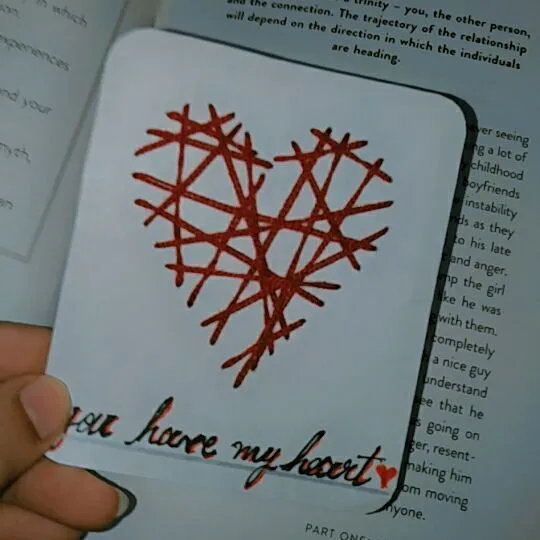 in which
experiences
and your
myth,
trinity – you, the other person,
and the connection. The trajectory of the relationship
will depend on the direction in which the individuals
are heading.
seeing
a lot of
childhood
boyfriends
instability
as they
to his late
and anger.
the girl
he was
with them.
completely
a nice guy
understand
that he
going on
resent-
making him
moving
PART ONE
you have my heart